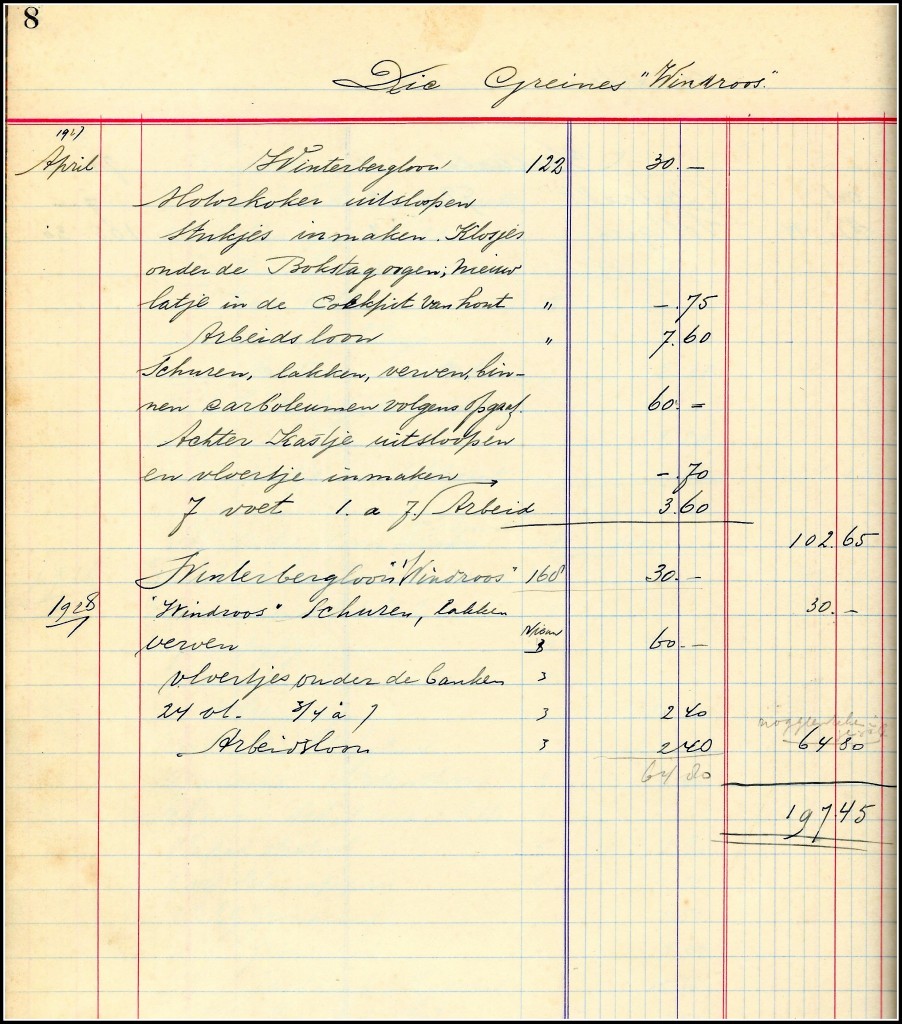 8
Die Greines "Windroos"
1927
April Winterbergloon 122 30.—
Motorkoker uitsloopen
Stukjes inmaken. Klosjes
onder de Bokstagoogen; nieuw
latje in de Cockpit van hout " —.75
Arbeidsloon " 7.60
Schuren, lakken, verven, bin-
nen carboleumen volgens opgaaf. 60.=
Achter Kastje uitsloopen
en vloertje inmaken —.70
7 voet 1. a 7. Arbeid 3.60
102.65
Winterbergloon "Windroos" 168 30.—
1928 "Windroos" Schuren, lakken 30.—
verven 60.—
vloertjes onder de banken 3
24 vl. 3/4 à 7 3 2 40
Arbeidsloon 3 2 40 64 80
64 80
197.45